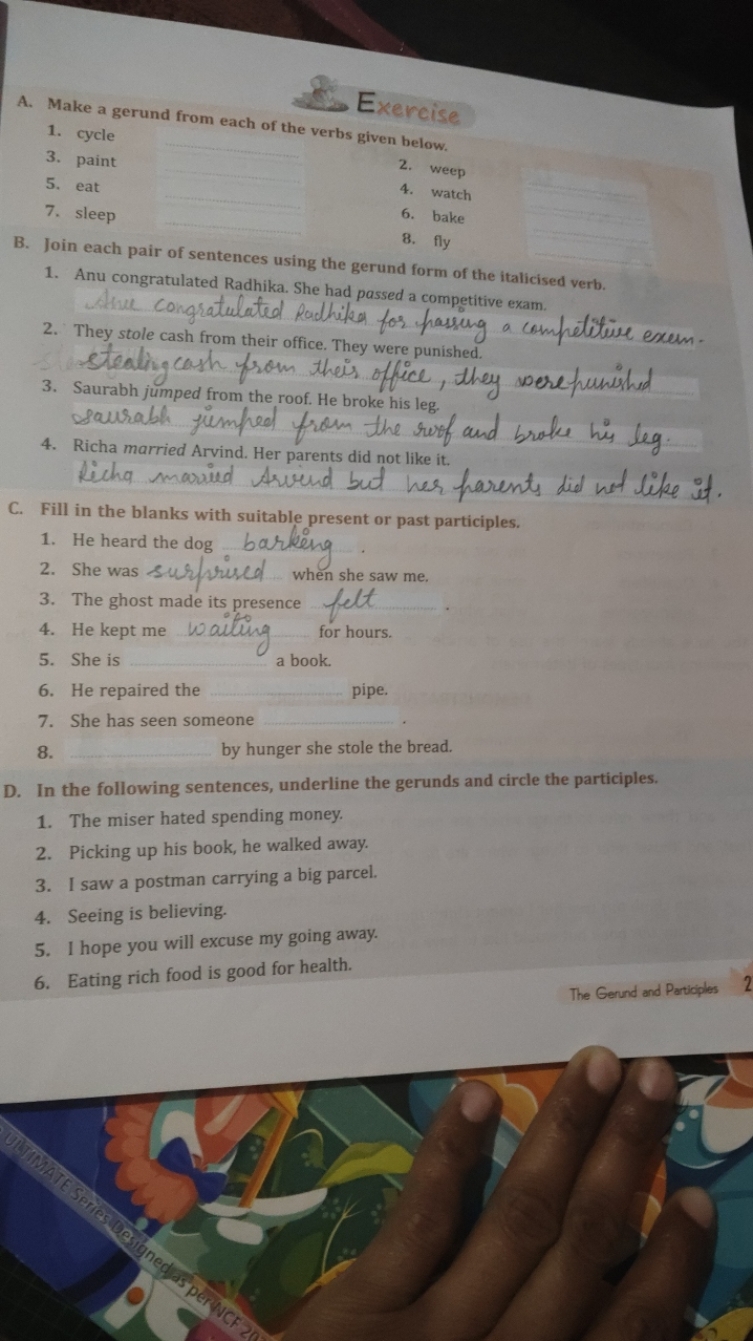 Exercise
A. Make a gerund from each of the verbs given below.
1. cycle
2. weep
3. paint
4. watch
5. eat
6. bake
7. sleep
8. fly
B. Join each pair of sentences using the gerund form of the italicised verb.
1. Anu congratulated Radhika. She had passed a competitive exam.
Anu congratulated Radhika for passing a competitive exem.
2. They stole cash from their office. They were punished.
stealing cash from their office, they were punished
3. Saurabh jumped from the roof. He broke his leg.
saurabh jumped from the roof and broke his leg.
4. Richa married Arvind. Her parents did not like it.
Richa married Arvind but her parents did not like it.
C. Fill in the blanks with suitable present or past participles.
1. He heard the dog barking .
2. She was surprised when she saw me.
3. The ghost made its presence felt .
4. He kept me waiting for hours.
5. She is a book.
6. He repaired the pipe.
7. She has seen someone .
8. by hunger she stole the bread.
D. In the following sentences, underline the gerunds and circle the participles.
1. The miser hated spending money.
2. Picking up his book, he walked away.
3. I saw a postman carrying a big parcel.
4. Seeing is believing.
5. I hope you will excuse my going away.
6. Eating rich food is good for health.
The Gerund and Participles 2
ULTIMATE Series Designed as per NCF 20